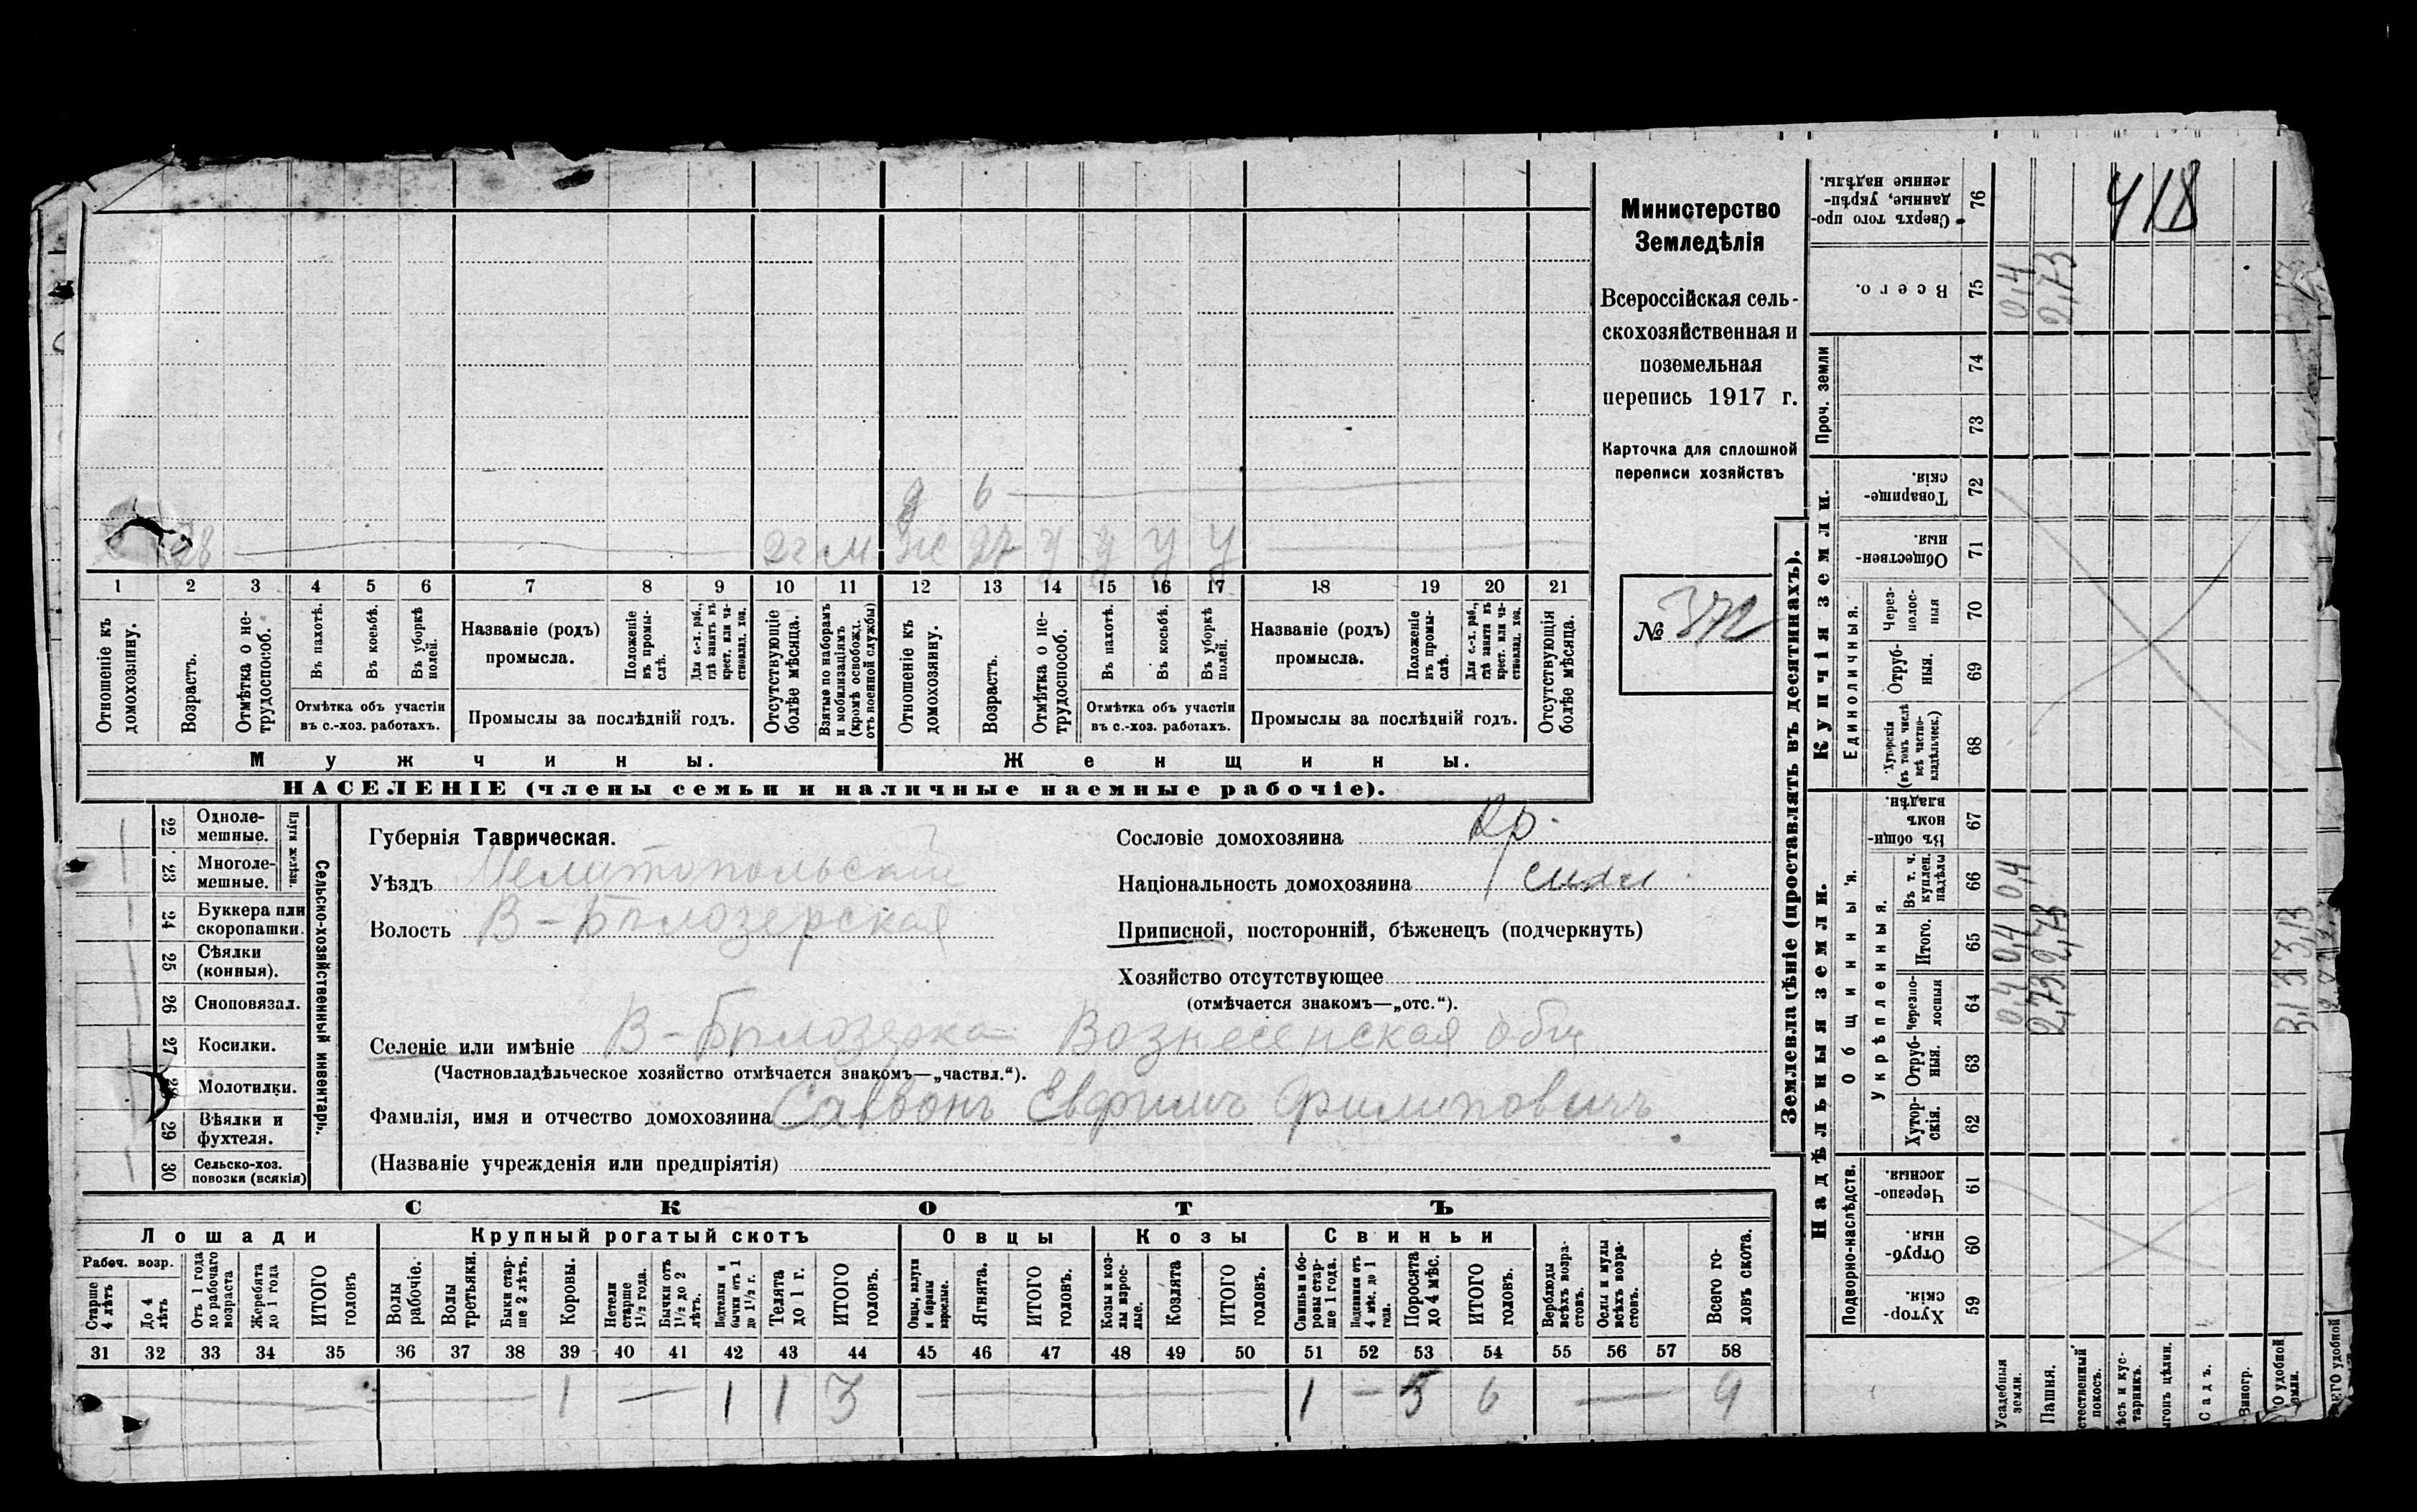 Министерство
Земледѣлія
Всероссійская сель-
скохозяйственная и
поземельная
перепись 1917 г.
Карточка для сплошной
переписи хозяйствъ
№ 372
418
д 6
28 2 г м ж 27 у у у у
1 2 3 4 5 6 7 8 9 10 11 12 13 14 15 16 17 18 19 20 21
Отношеніе къ домохозяину.
Возрастъ.
Отмѣтка о не-трудоспособ.
Въ пахотѣ.
Въ косьбѣ.
Въ уборкѣ полей.
Отмѣтка объ участіи
въ с.-хоз. работахъ.
Названіе (родъ)
промысла.
Положеніе въ промы-слѣ.
Для с.-х. раб., гдѣ занятъ въ крест. или ча-стновлад. хоз.
Промыслы за послѣдній годъ.
Отсутствующіе болѣе мѣсяца.
Взятые по наборамъ и мобилизаціямъ (кромѣ освобожд. отъ военной службы)
Отношеніе къ домохозяину.
Возрастъ.
Отмѣтка о не-трудоспособ.
Въ пахотѣ.
Въ косьбѣ.
Въ уборкѣ полей.
Отмѣтка объ участіи
въ с.-хоз. работахъ.
Названіе (родъ)
промысла.
Положеніе въ промы-слѣ.
Для с.-х. раб., гдѣ занята въ крест. или ча-стновлад. хоз.
Промыслы за послѣдній годъ.
Отсутствующія болѣе мѣсяца.
Мужчины. Женщины.
НАСЕЛЕНІЕ (члены семьи и наличные наемные рабочіе).
Сельско-хозяйственный инвентарь.
Плуги желѣзн.
22 Одноле-мешные.
23 Многоле-мешные.
24 Буккера или скоропашки.
25 Сѣялки (конныя).
26 Сноповязал.
27 Косилки.
28 Молотилки.
29 Вѣялки и фухтеля.
30 Сельско-хоз. повозки (всякія)
Губернія Таврическая.
Уѣздъ Мелитопольскій
Волость В-Бѣлозерская
Сословіе домохозяина Кр.
Національность домохозяина
Приписной, посторонній, бѣженецъ (подчеркнуть)
Хозяйство отсутствующее
(отмѣчается знакомъ—„отс.“).
Селеніе или имѣніе В-Бѣлозерка Вознесенская общ
(Частновладѣльческое хозяйство отмѣчается знакомъ—„частвл.“).
Фамилія, имя и отчество домохозяина Саввонъ Евфимъ Филиповичъ
(Названіе учрежденія или предпріятія)
СКОТЪ
Лошади Крупный рогатый скотъ Овцы Козы Свиньи
Рабоч. возр.
Старше 4 лѣтъ
До 4 лѣтъ
Отъ 1 года до рабочаго возраста
Жеребята до 1 года
ИТОГО головъ
Волы рабочіе.
Волы третьяки.
Быки стар-ше 2 лѣтъ.
Коровы.
Нетели старше 1½ года.
Бычки отъ 1½ до 2 лѣтъ.
Подтелки и бычки отъ 1 до 1½ г.
Телята до 1 г.
ИТОГО головъ.
Овцы, валухи и бараны взрослые.
Ягнята.
ИТОГО головъ.
Козы и коз-лы взрос-лые.
Козлята
ИТОГО головъ.
Свиньи и бо-ровы стар-ше 1 года.
Подсвинки отъ 4 мѣс. до 1 года.
Поросята до 4 мѣс.
ИТОГО головъ.
Верблюды всѣхъ возра-стовъ.
Ослы и мулы всѣхъ возра-стовъ.
Всего го-ловъ скота.
31 32 33 34 35 36 37 38 39 40 41 42 43 44 45 46 47 48 49 50 51 52 53 54 55 56 57 58
1 — 1 1 3 — 1 — 5 6 — 9
Землевладѣніе (проставлять въ десятинахъ).
Надѣльныя земли. Купчія земли. Проч. земли
Подворно-наслѣдств.
Общинныя.
Укрѣпленныя.
Единоличныя.
59 Хутор-скія.
60 Отруб-ныя.
61 Черезпо-лосныя
62 Хутор-скія.
63 Отруб-ныя.
64 Черезпо-лосныя
65 Итого.
66 Въ т. ч. куплен. надѣлы
67 Въ общи-номъ владѣн.
68 Хуторскія (въ томъ числѣ всѣ частно-владѣльческ.)
69 Отруб-ныя.
70 Через-полос-ныя
71 Обществен-ныя.
72 Товарище-скія.
73
74
75 Всего.
76 Сверхъ того про-данные, укрѣп-ленные надѣлы.
Усадебныя земли. 0,4 0,4 0,4 0,4
Пашня. 2,73 2,73 2,73
стественный покосъ.
ѣсъ и кус-тарникъ.
ыгонъ цѣлин.
Садъ.
Виногр.
О удобной земли. 3,13 3,13
ЕГО удобной